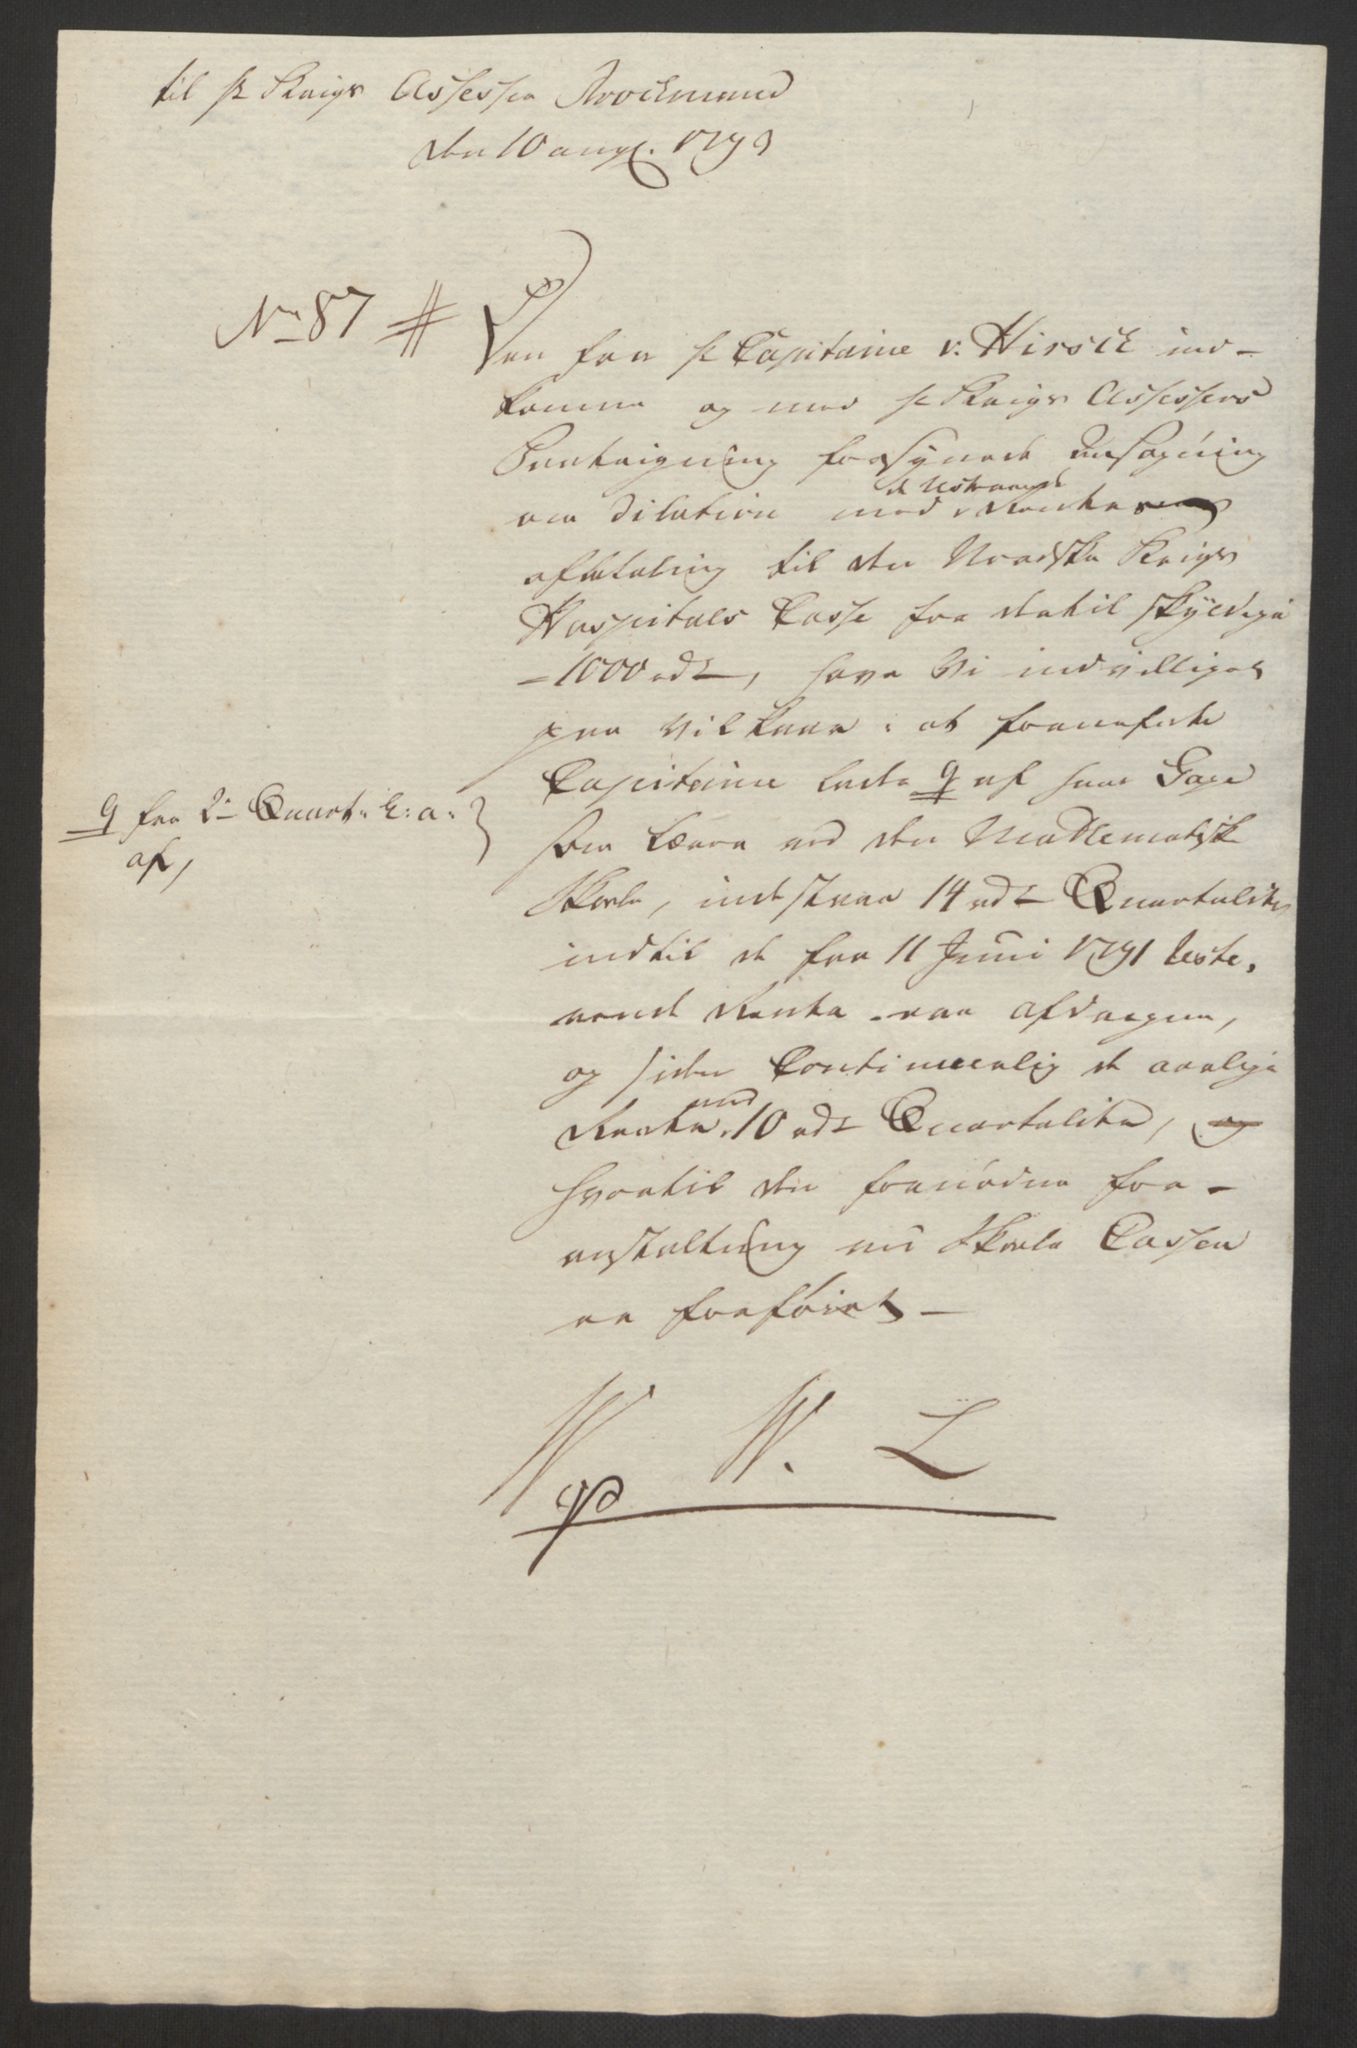 til H Krigs Assessor Brochmand
den 10 augt. 1793
No 87 #
Den fra H Capitaine v. Hirsch ind-
komne og med H Krigs Assessors
Paateigning forsynede Ansøgning
om Dilation med de Resterende Renters
afbetaling til den Norske Krigs
Hospitals Casse for dertil skyldige
1000 rd, have Vi indvilliget
paa Vilkaar: at formeldte
Capitaine lade q af sin Gage
som Lærer ved den Mathematiske
Skole, indestaae 14 rd Quartaliter
indtil de fra 11 Junii 1791 Reste-
rende Renter ere afdragne,
og siden Continuerlig de aarlige
Renter med 10 rd Quartaliter, og
hvortil den fornødne for-
anstaltning ved Skole Cassen
er forføiet -
q fra 2 Quart. h: a:
af,
W W. L